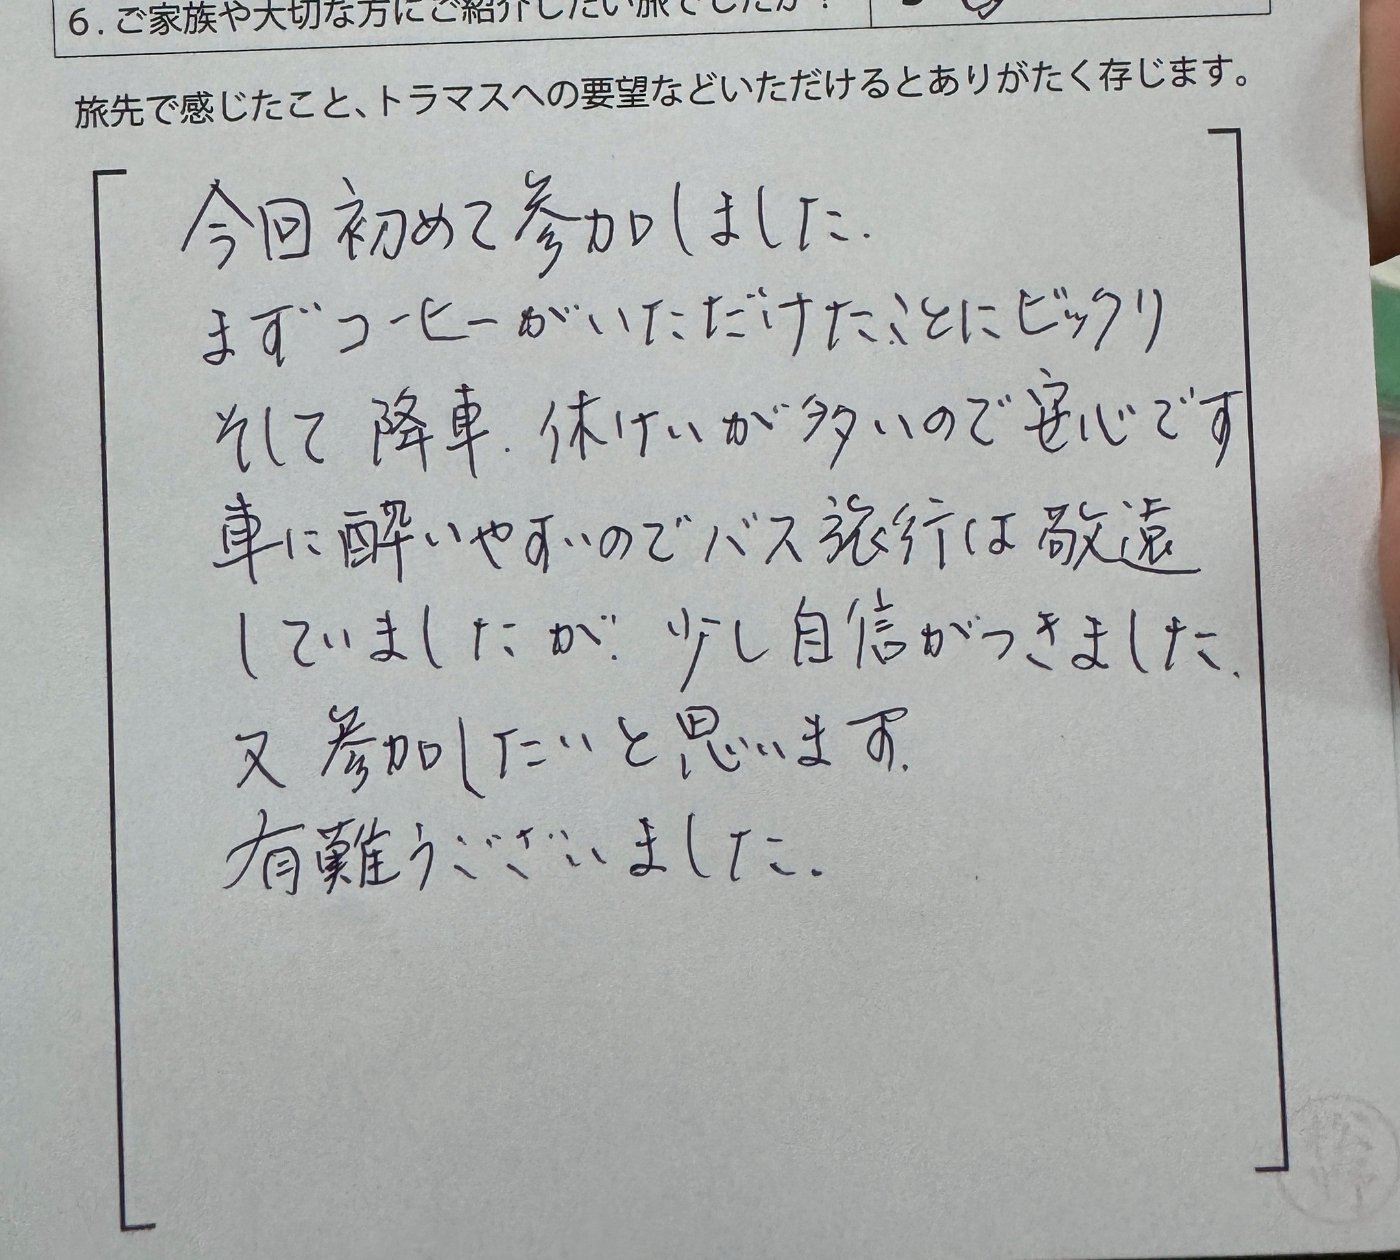 6. ご家族や大切な方にご紹介したい旅でしたか？
旅先で感じたこと、トラマスへの要望などいただけるとありがたく存じます。
今回初めて参加しました.
まずコーヒーがいただけたことにビックリ
そして降車.休けいが多いので安心です
車に酔いやすいのでバス旅行は敬遠
していましたが.少し自信がつきました.
又参加したいと思います.
有難うございました.